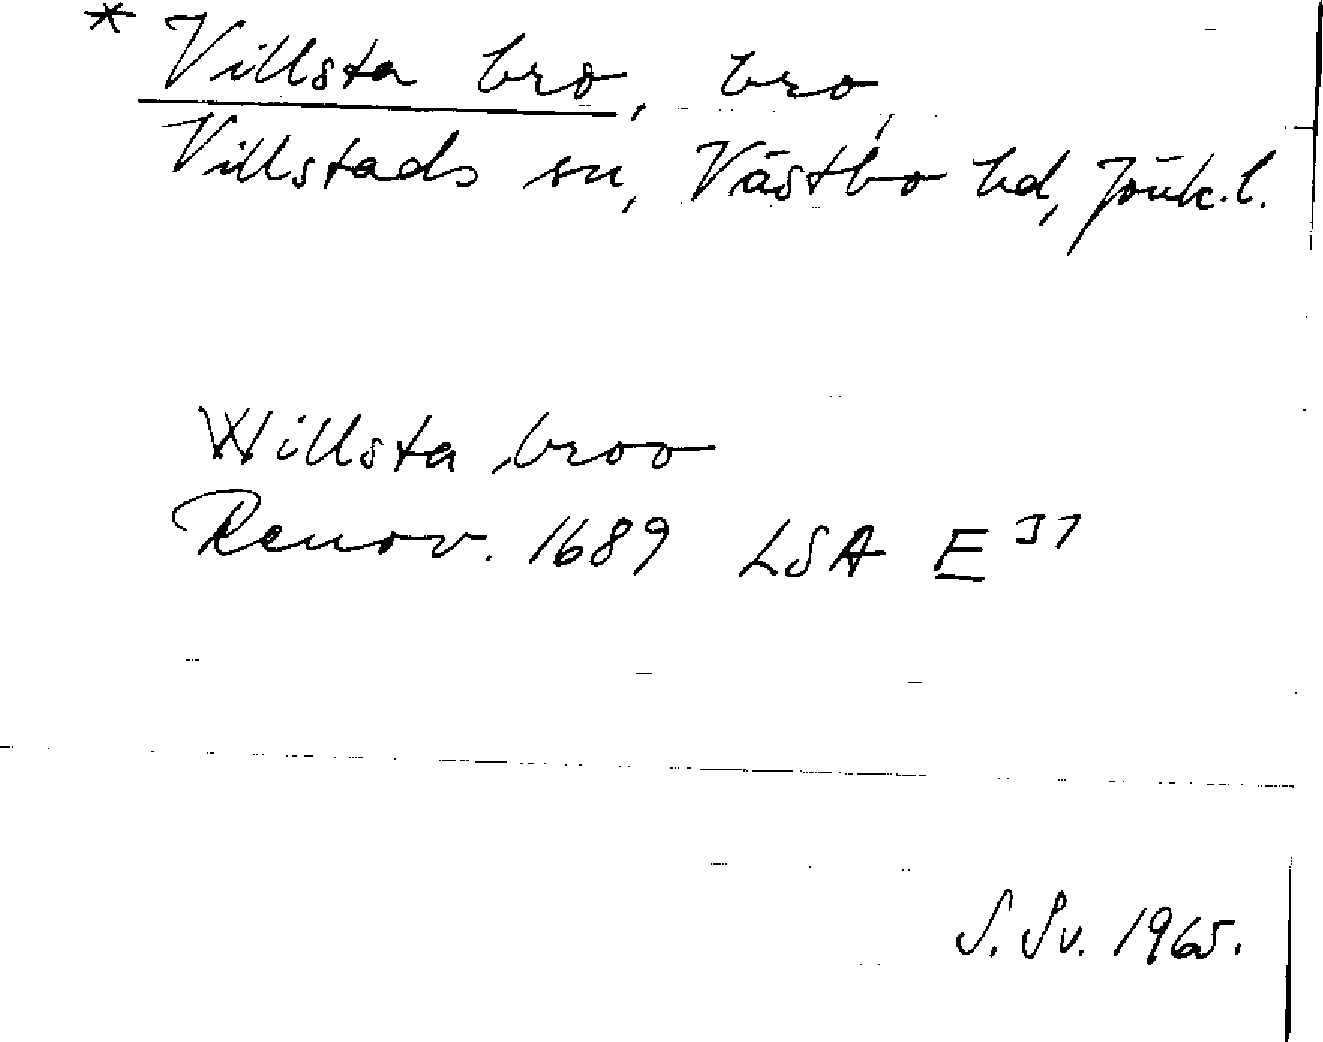 * Villsta bro, bro,
Villstads sn, Västbo hd, Jönk.l.
Willsta broo
Renov. 1689 LSA E 37
S. Sv. 1965.